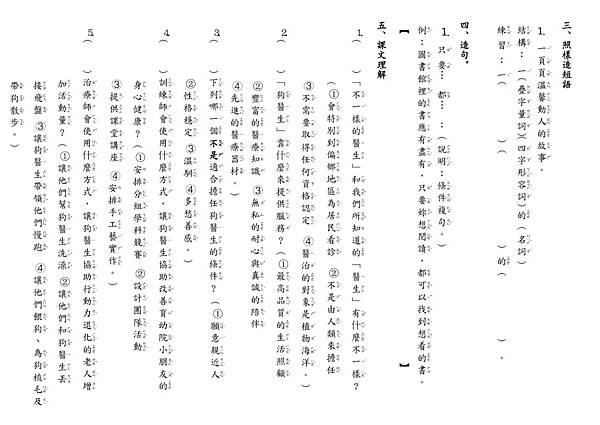 三、照樣造短語
1. 一頁頁溫馨動人的故事。
結構：一(疊字量詞)(四字形容詞)的(名詞)
練習：一(　　)(　　　　)的(　　　　)。
四、造句。
1. 只要…都…：(說明：條件複句。)
例：圖書館裡的書應有盡有，只要妳想閱讀，都可以找到想看的書。
【　　　　】
五、課文理解
1.(　)「不一樣的醫生」和我們所知道的「醫生」有什麼不一樣？
(①會特別到偏鄉地區為居民看診　②不是由人類來擔任
③不需要取得任何資格認定　④醫治的對象是植物海洋。)
2.(　)「狗醫生」靠什麼來提供服務？(①最高品質的生活照顧
②豐富的醫療知識　③無私的耐心與真誠的陪伴
④先進的醫療器材。)
3.(　)下列哪一個不是適合擔任狗醫生的條件？(①願意親近人
②性格穩定　③溫馴　④多愁善感。)
4.(　)訓練師會使用什麼方式，讓狗醫生協助改善育幼院小朋友的
身心健康？(①安排分組學科競賽　②設計團隊活動
③提供課堂講座　④安排手工藝實作。)
5.(　)治療師會使用什麼方式，讓狗醫生協助行動力退化的老人增
加活動量？(①讓他們幫狗醫生洗澡　②讓他們和狗醫生丟
接飛盤　③讓狗醫生帶領他們慢跑　④讓他們餵狗、為狗梳毛及
帶狗散步。)